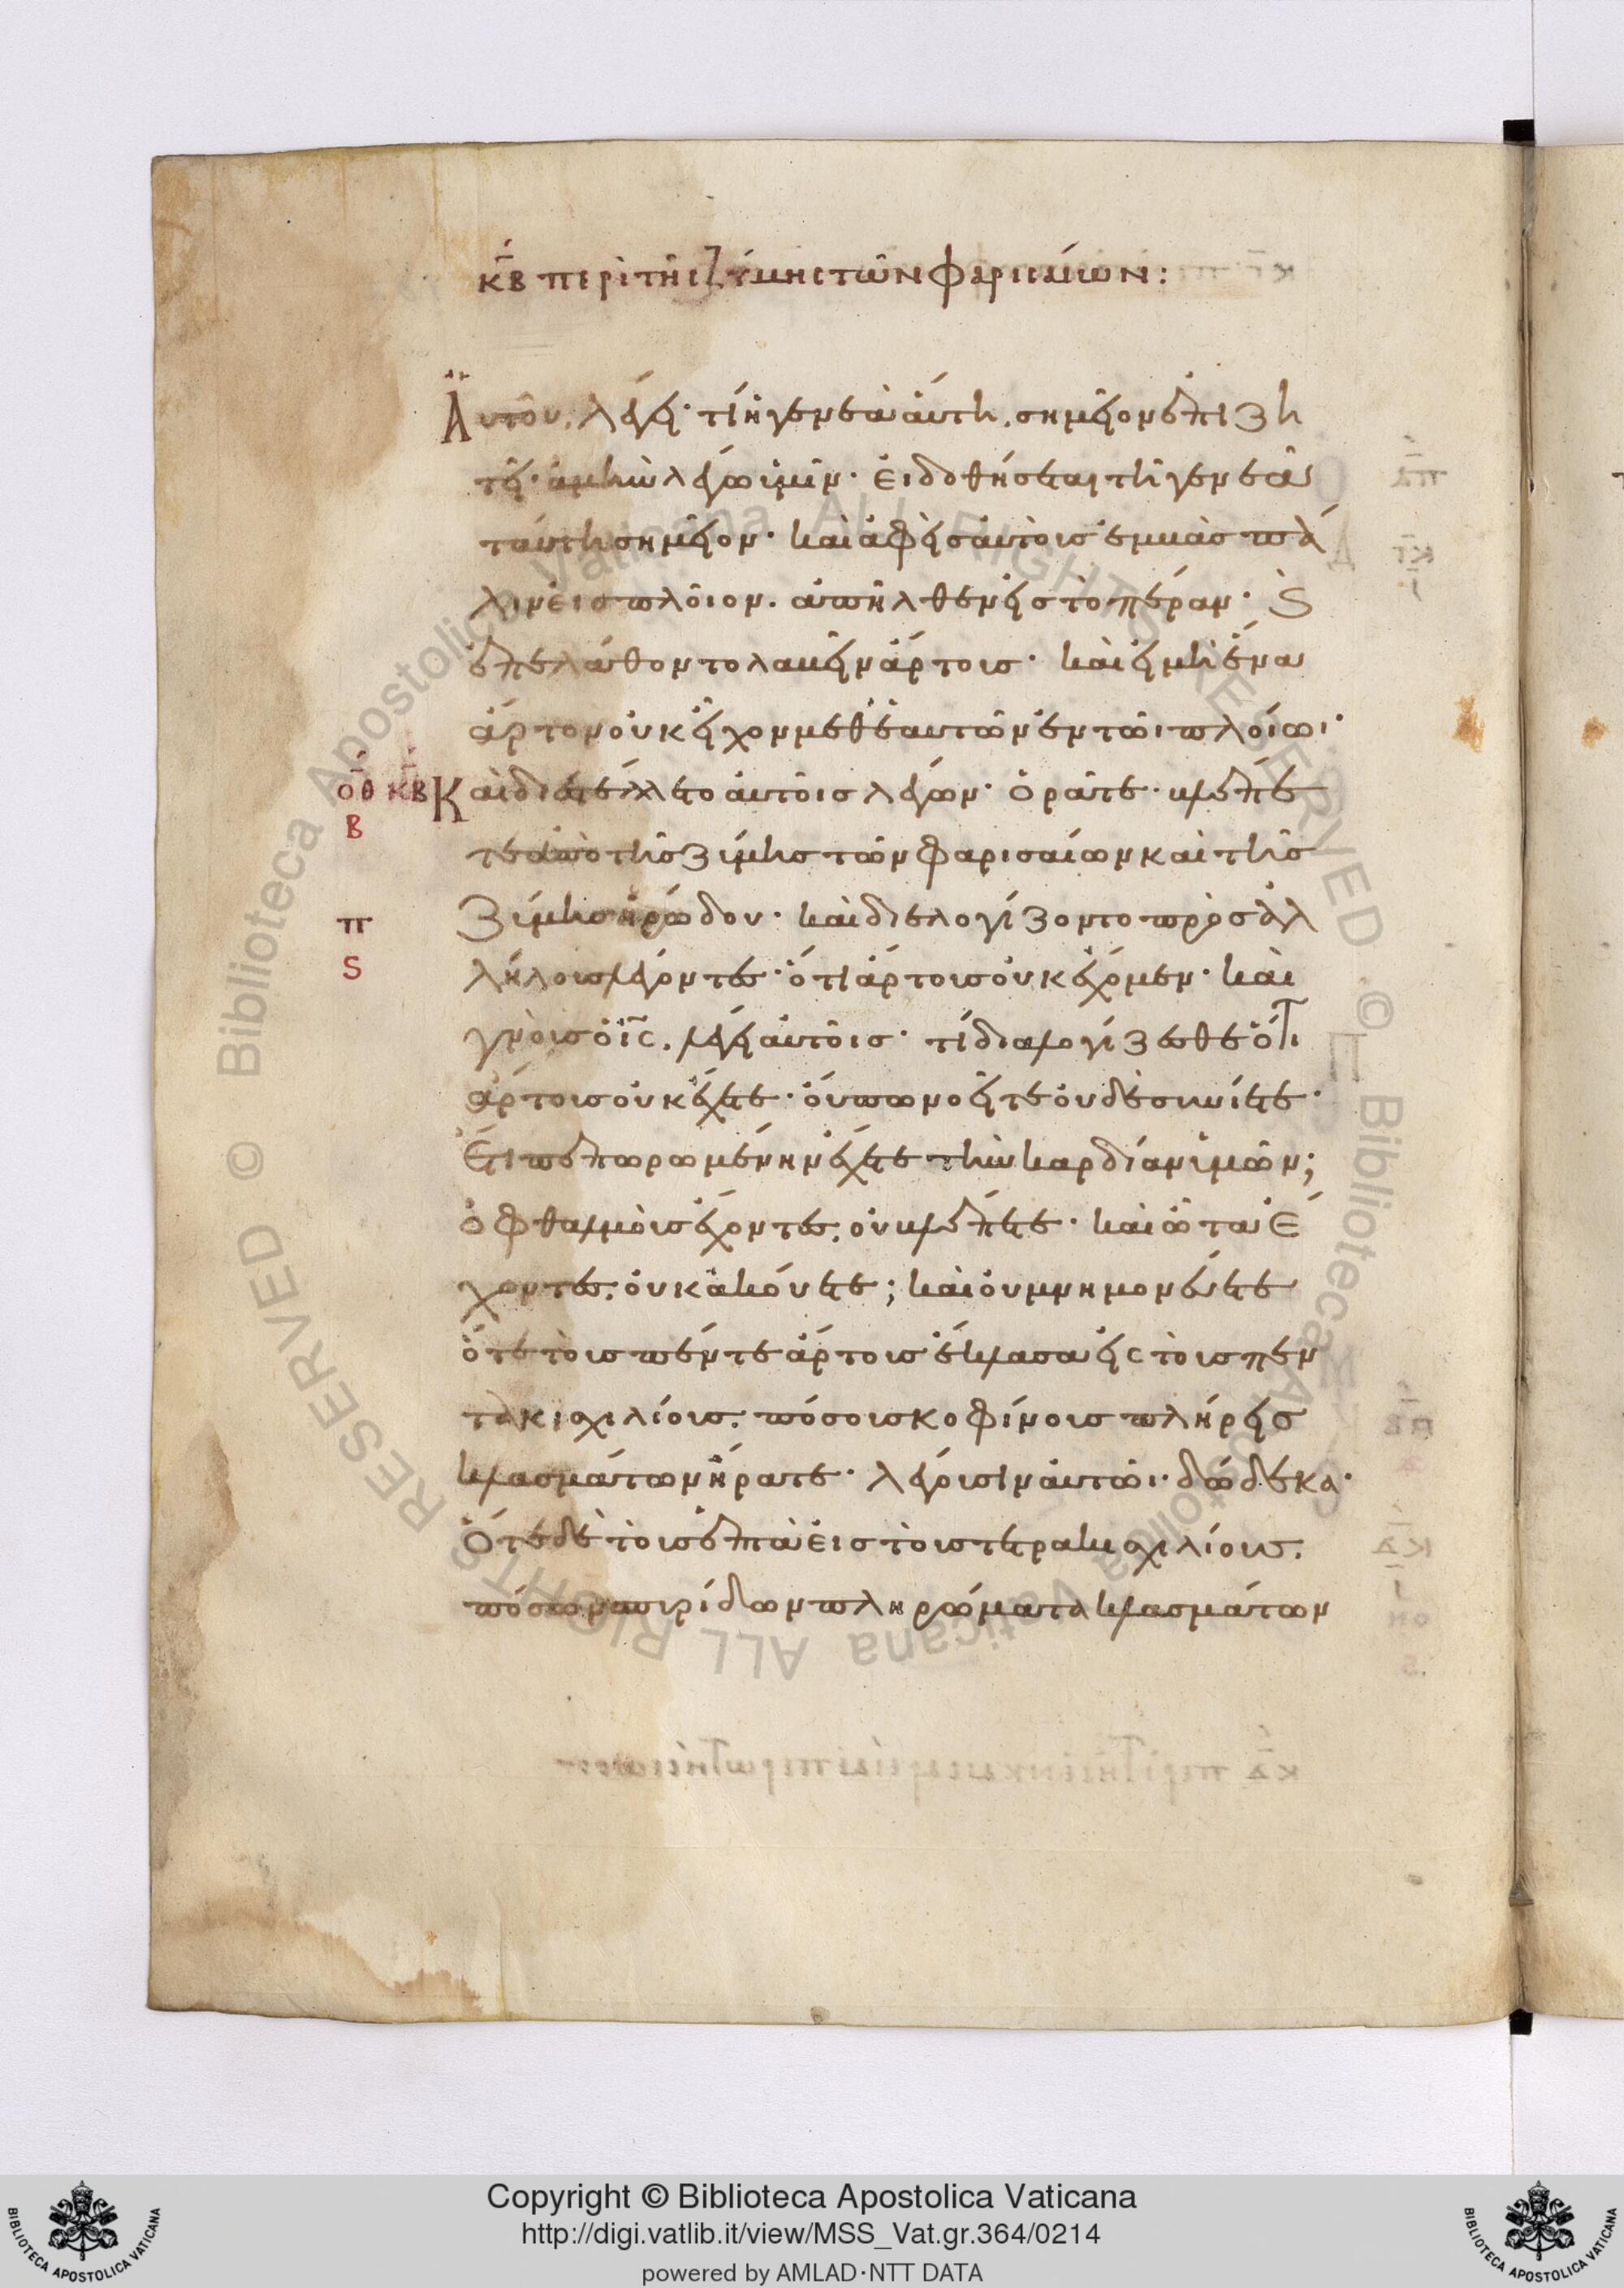 κβ περὶ τῆς ζύμης τῶν φαρισαίων:
Αυτοῦ, λέγει· τί ἡ γενεὰ ἁύτη, σημεῖον ἐπιζη
τεῖ· ἀμὴν λέγω ὑμῖν· ἐι δοθήσεται τῆ γενεᾶ
ταύτη σημεῖον· καὶ ἀφεὶς ἀυτοὺς ἐμβὰς πά
λιν ἐις πλοῖον. ἀπῆλθεν εἰς τὸ πέραν· Ϗ
ἐπελάθοντο λαβεῖν ἄρτους· καὶ εἰ μὴ ἕνα
ἄρτον οὐκ εἶχον μεθ ἑαυτῶν ἐν τῶι πλοίωι·
οθ κβ Καὶ διεστέλλετο ἀυτοῖς λέγων· ὁρᾶτε· βλέπε
β
τε ἀπὸ τῆς ζύμης τῶν φαρισαίων καὶ τῆς
π ζύμης ἡρώδου· καὶ διελογίζοντο πρὸς ἀλ
ς λήλους λέγοντες· ὅτι ἄρτους οὐκ ἔχομεν· καὶ
γνοὺς ὁ ις, λέγει ἀυτοῖς· τί διαλογίζεσθε ὅτι
ἄρτους οὐκ ἔχετε· οὔπω νοεῖτε οὐδὲ συνίετε·
Ἔτι πεπωρωμένην ἔχετε τὴν καρδίαν ὑμῶν;
ὀφθαλμοὺς ἔχοντες, οὐ βλέπετε· καὶ ὦτα ἔ
χοντες, οὐκ ἀκούετε; καὶ οὐ μνημονεύετε
ὅτε τοὺς πέντε ἄρτους ἔκλασα εἰς τοὺς πεν
τακισχιλίους, πόσους κοφίνους πλήρεις
κλασμάτων ἤρατε· λέγουσιν ἀυτῶι· δώδεκα·
Ὅτε δὲ τοὺς ἑπτὰ ἐις τοὺς τετρακισχιλίους,
πόσων σπυρίδων πληρώματα κλασμάτων
Copyright © Biblioteca Apostolica Vaticana
http://digi.vatlib.it/view/MSS_Vat.gr.364/0214
powered by AMLAD·NTT DATA